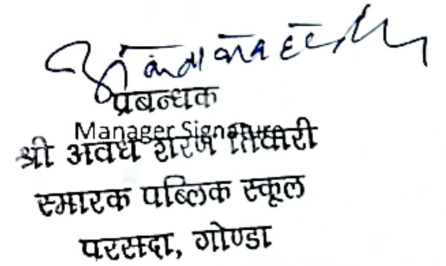 प्रबन्धक
Manager Signature
श्री अवध शरण तिवारी
स्मारक पब्लिक स्कूल
परसदा, गोण्डा